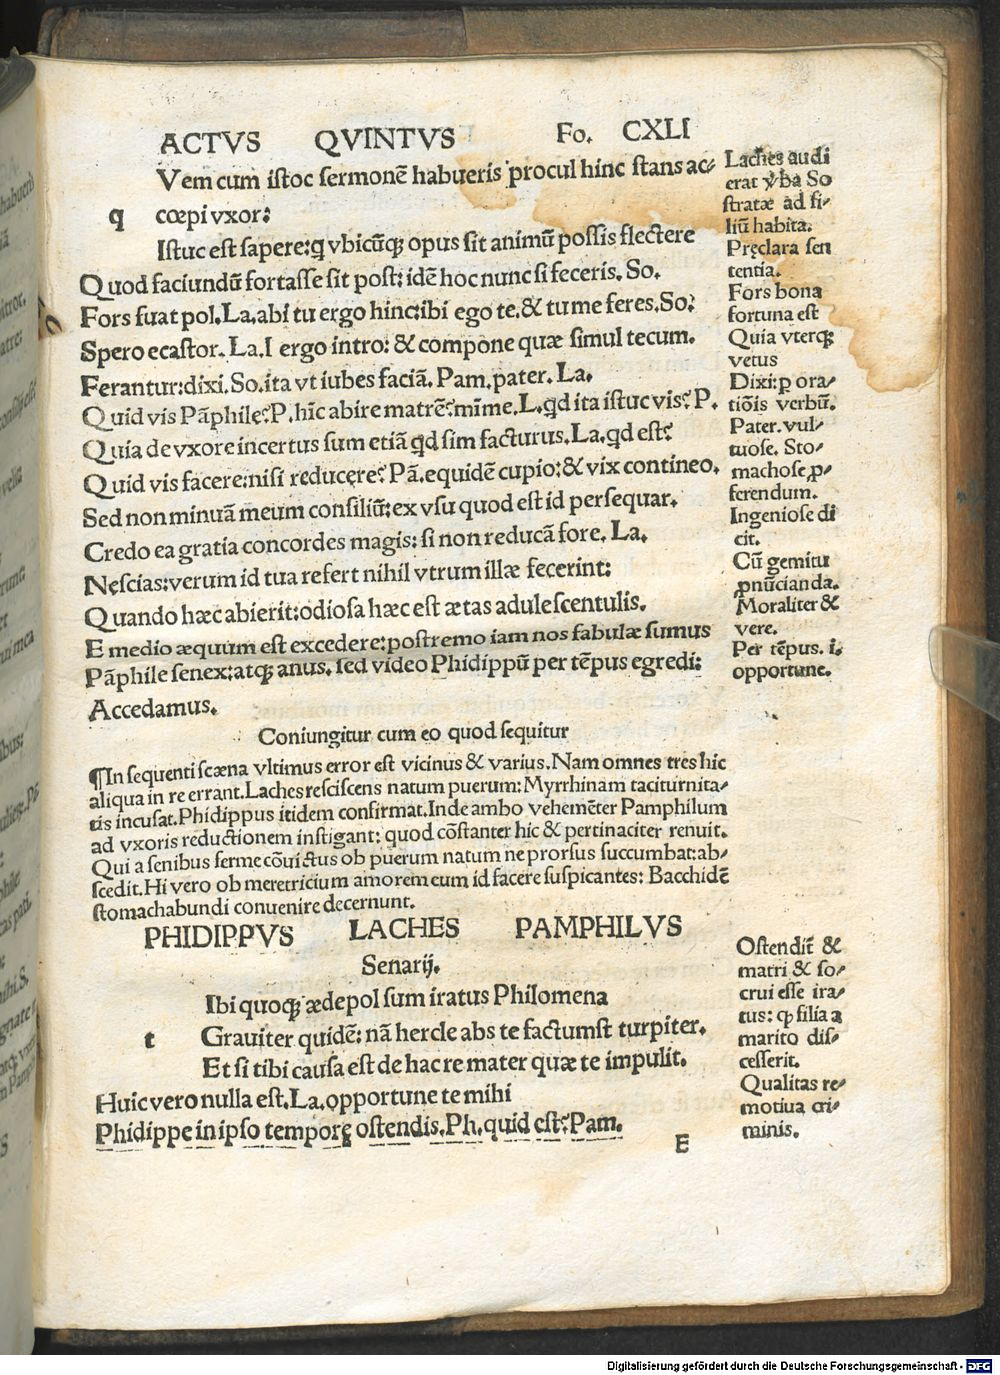 ACTVS QVINTVS Fo. CXLI
Vem cum istoc sermonē habueris procul hinc stans ac⸗
q cœpi vxor:
Istuc est sapere: q vbicūq; opus sit animū possis flectere
Quod faciundū fortasse sit post: idē hoc nunc si feceris. So.
Fors fuat pol. La. abi tu ergo hinc: ibi ego te. & tu me feres. So:
Spero ecastor. La. I ergo intro: & compone quæ simul tecum.
Ferantur: dixi. So. ita vt iubes faciā. Pam. pater. La.
Quid vis Pāphilę? P. hīc abire matrē? mīme. L. qd ita istuc vis? P.
Quia de vxore incertus sum etiā qd sim facturus. La. qd est?
Quid vis facere: nisi reducęre? Pā. equidē cupio: & vix contineo.
Sed non minuā meum consiliū: ex vsu quod est id persequar.
Credo ea gratia concordes magis: si non reducā fore. La.
Nęscias: verum id tua refert nihil vtrum illæ fecerint:
Quando hæc abierit: odiosa hæc est ætas adulescentulis.
E medio æquum est excedere: postremo iam nos fabulæ sumus
Pāphile senex: atq; anus. sed video Phidippū per tēpus egredi:
Accedamus.
Laches audi
erat v̄ba So
stratæ ad fi⸗
liū habita.
Pręclara sen
tentia.
Fors bona
fortuna est
Quia vterq;
vetus
Dixi: p ora⸗
tiōis verbū.
Pater. vul⸗
tuose. Sto⸗
machose ꝓ⸗
ferendum.
Ingeniose di
cit.
Cū gemitu
ꝓnūcianda.
Moraliter &
vere.
Per tēpus. i.
opportune.
Coniungitur cum eo quod sequitur
¶In sequenti scæna vltimus error est vicinus & varius. Nam omnes tres hic
aliqua in re errant. Laches resciscens natum puerum: Myrrhinam taciturnita⸗
tis incusat. Phidippus itidem confirmat. Inde ambo vehemēter Pamphilum
ad vxoris reductionem instigant: quod cōstanter hic & pertinaciter renuit.
Qui a senibus ferme cōuictus ob puerum natum ne prorsus succumbat: ab⸗
scedit. Hi vero ob meretricium amorem eum id facere suspicantes: Bacchidē
stomachabundi conuenire decernunt.
PHIDIPPVS LACHES PAMPHILVS
Senarij.
Ibi quoq; ædepol sum iratus Philomena
t Grauiter quidē: nā hercle abs te factumst turpiter.
Et si tibi causa est de hac re mater quæ te impulit.
Huic vero nulla est. La. opportune te mihi
Phidippe in ipso temporę ostendis. Ph. quid est? Pam.
Ostendit &
matri & so⸗
crui esse ira⸗
tus: ꝙ filia a
marito dis⸗
cesserit.
Qualitas re⸗
motiua cri⸗
minis.
E
Digitalisierung gefördert durch die Deutsche Forschungsgemeinschaft - DFG